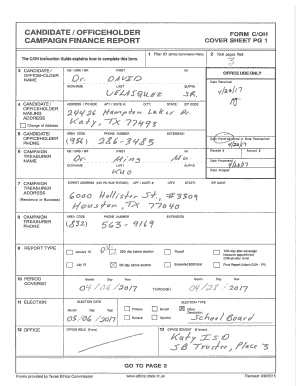 CANDIDATE / OFFICEHOLDER FORM C/OH
CAMPAIGN FINANCE REPORT COVER SHEET PG 1
The C/OH Instruction Guide explains how to complete this form.
1 Filer ID (Ethics Commission Filers)
2 Total pages filed:
3
3 CANDIDATE / OFFICEHOLDER NAME
MS / MRS / MR FIRST MI
Dr. DAVID
NICKNAME LAST SUFFIX
VELASQUEZ SR.
OFFICE USE ONLY
Date Received
4 CANDIDATE / OFFICEHOLDER MAILING ADDRESS
Change of Address
ADDRESS / PO BOX; APT / SUITE #; CITY; STATE; ZIP CODE
24426 Hampton Lakes Dr.
Katy, TX 77493
5 CANDIDATE / OFFICEHOLDER PHONE
AREA CODE PHONE NUMBER EXTENSION
(956) 286-3483
Date Hand-delivered or Date Postmarked
Receipt # Amount $
Date Processed
Date Imaged
6 CAMPAIGN TREASURER NAME
MS / MRS / MR FIRST MI
Dr. Ming Mu
NICKNAME LAST SUFFIX
Kuo
7 CAMPAIGN TREASURER ADDRESS
(Residence or Business)
STREET ADDRESS (NO PO BOX PLEASE); APT / SUITE #; CITY; STATE; ZIP CODE
6000 Hollister St., #3309
Houston, TX 77040
8 CAMPAIGN TREASURER PHONE
AREA CODE PHONE NUMBER EXTENSION
(832) 563-9169
9 REPORT TYPE
January 15
30th day before election
Runoff
15th day after campaign treasurer appointment (Officeholder Only)
July 15
8th day before election
Exceeded $500 limit
Final Report (Attach C/OH - FR)
10 PERIOD COVERED
Month Day Year
04/06/2017 THROUGH 04/28/2017
11 ELECTION
ELECTION DATE
Month Day Year
05/06/2017
ELECTION TYPE
Primary
Runoff
Other Description
General
Special
School Board
12 OFFICE
OFFICE HELD (if any)
13 OFFICE SOUGHT (if known)
Katy ISD
SB Trustee, Place 3
GO TO PAGE 2
Forms provided by Texas Ethics Commission www.ethics.state.tx.us